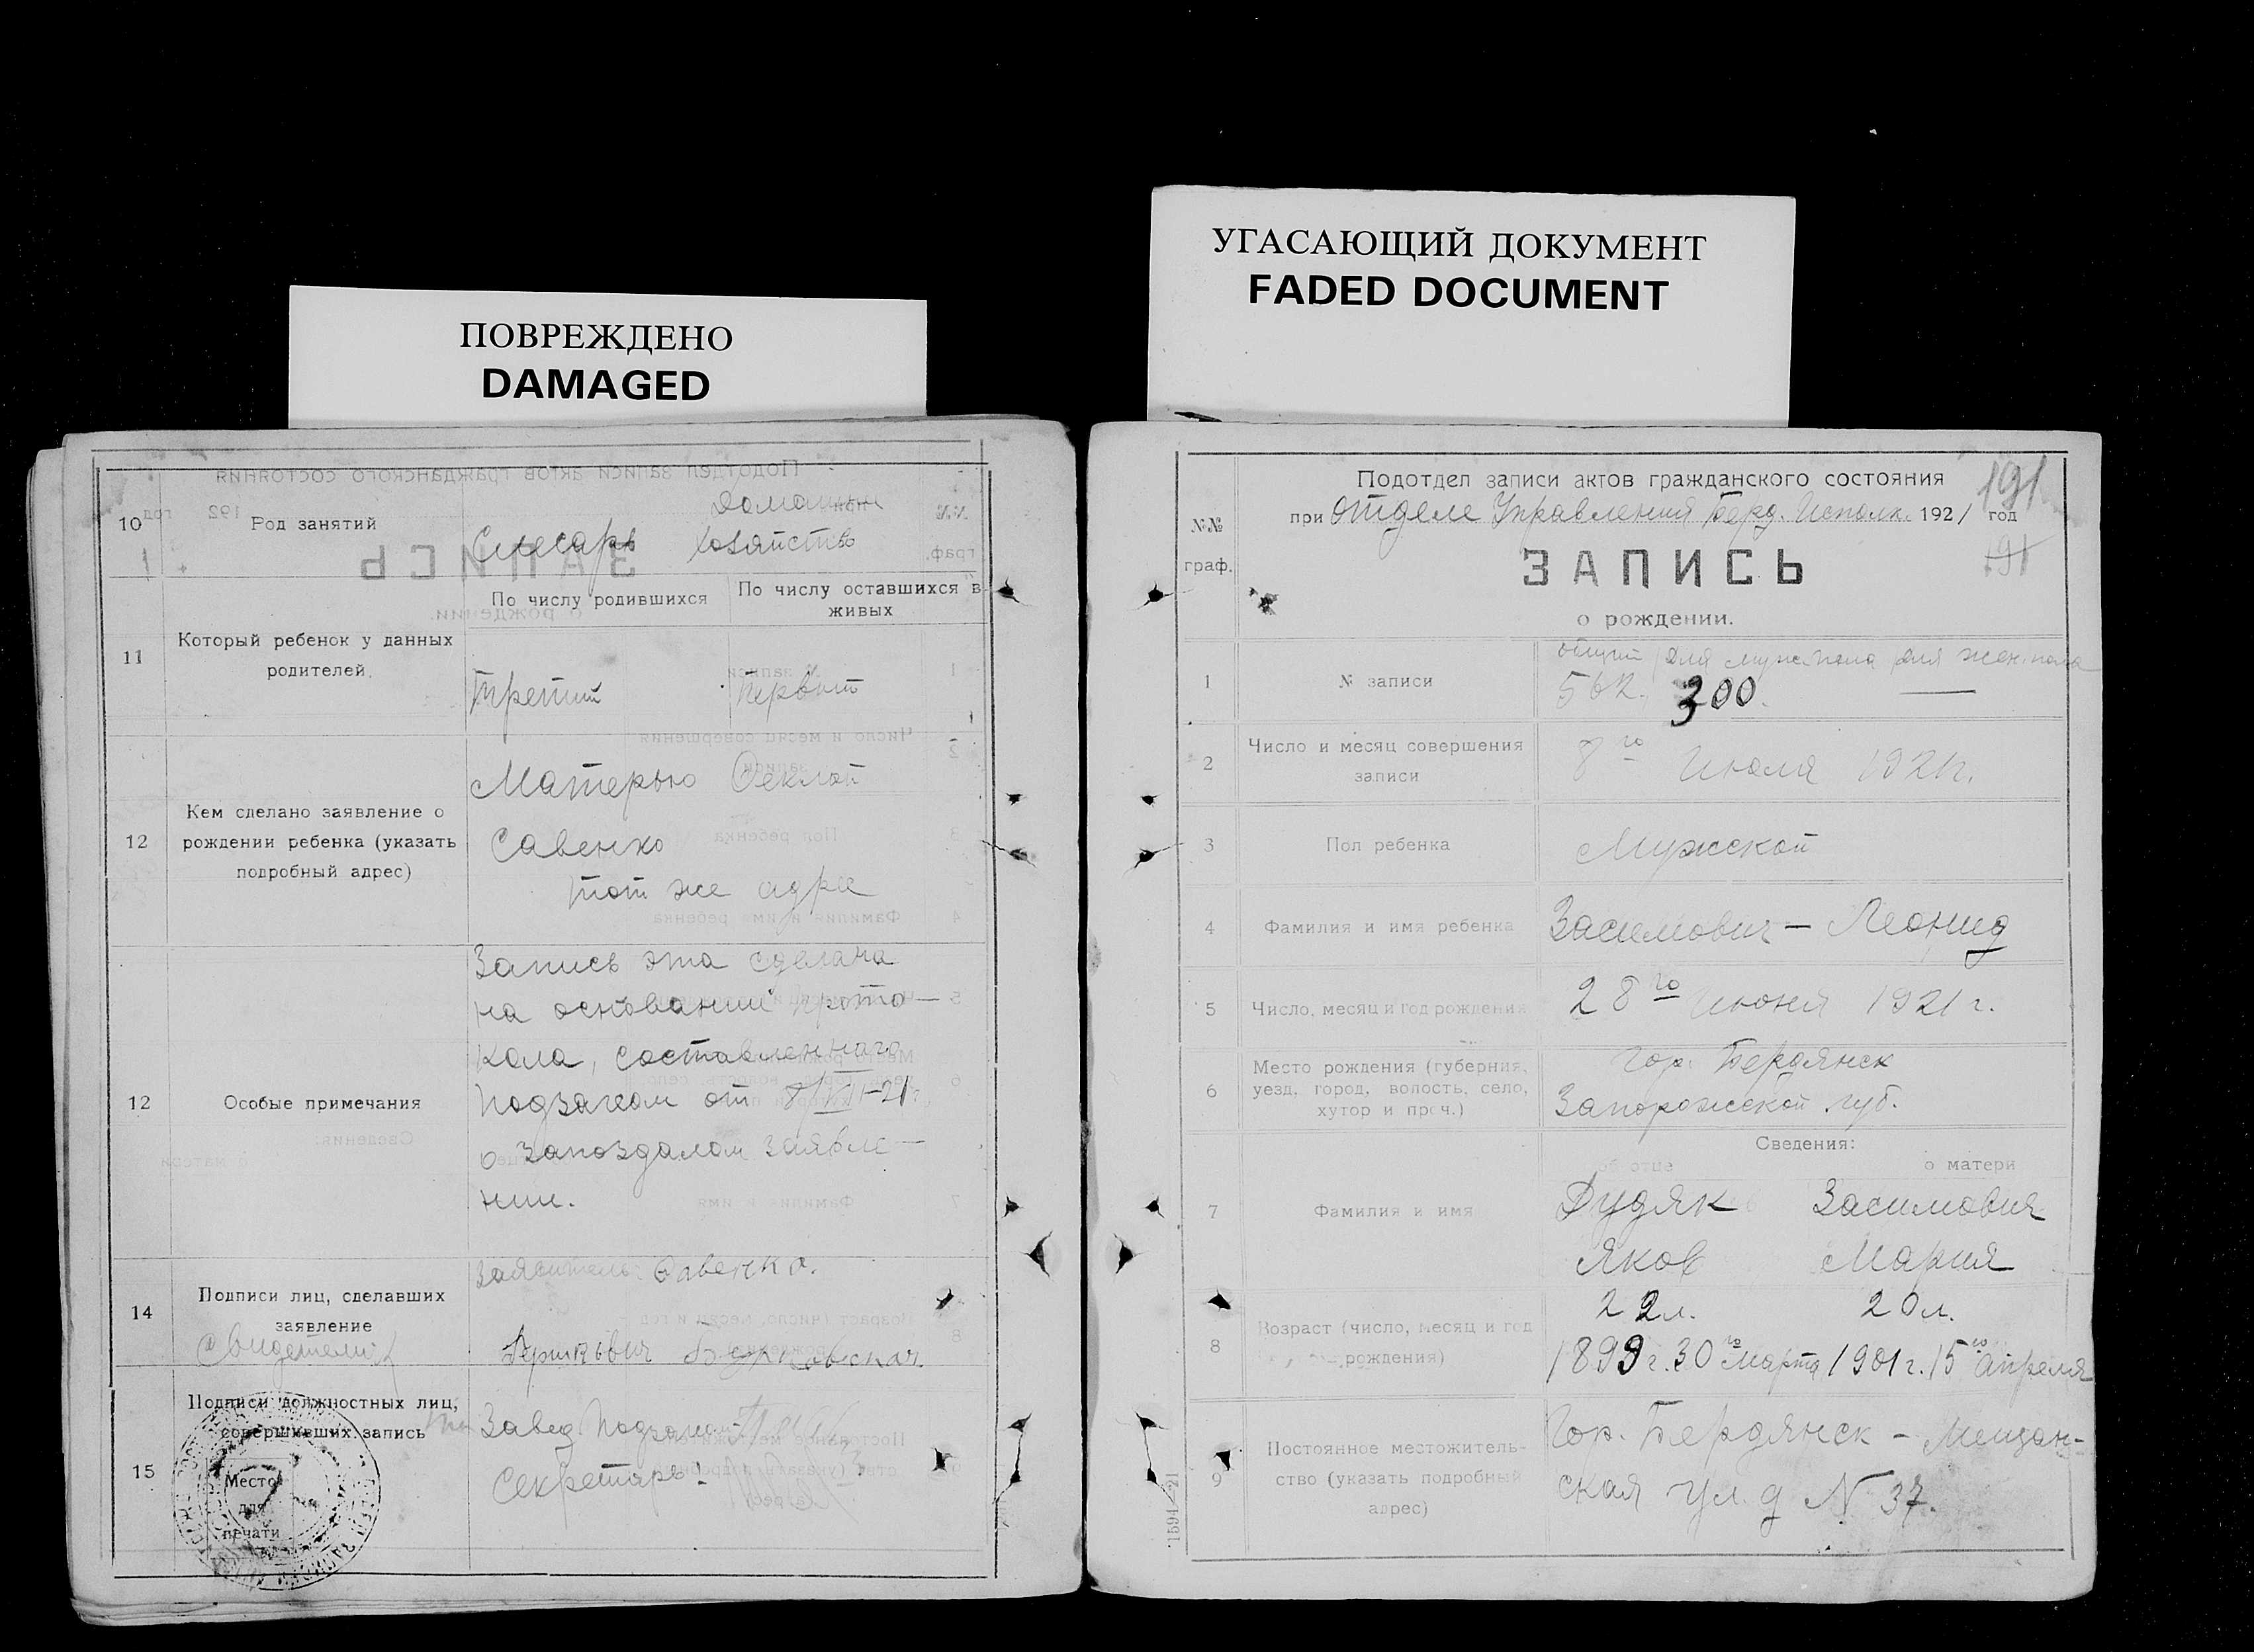 ПОВРЕЖДЕНО
DAMAGED
УГАСАЮЩИЙ ДОКУМЕНТ
FADED DOCUMENT
10 Род занятий
Слесарь
Хозяйство
11 Который ребенок у данных родителей.
По числу родившихся
По числу оставшихся в живых
Третий
Первый
12 Кем сделано заявление о рождении ребенка (указать подробный адрес)
Матерью Феклой
Савенко
тот же адре
12 Особые примечания
Запись эта сделана
на основании прото—
кола, составленнаго
Подзагсом от 8/VII-21г
о запоздалом заявле—
нии.
14 Подписи лиц, сделавших заявление
Свидетели
Заявитель: Савенко.
15 Подписи должностных лиц, совершивших запись
Место
для
печати
Завед. Подзагсом
Секретарь:
Подотдел записи актов гражданского состояния
191
при Отделе Управления Берд. Исполк. 1921 год
№№
граф.
ЗАПИСЬ
191
о рождении.
общий для муж. пола для жен. пола
1 № записи
562. 300. —
2 Число и месяц совершения записи
8го Июля 1921г.
3 Пол ребенка
Мужской
4 Фамилия и имя ребенка
Засимович — Леонид
5 Число, месяц и год рождения
28го Июня 1921 г.
6 Место рождения (губерния, уезд, город, волость, село, хутор и проч.)
Гор. Бердянск
Запорожской губ.
Сведения:
об отце
о матери
7 Фамилия и имя
Дудяк Засимович
Яков Мария
8 Возраст (число, месяц и год рождения)
22л. 20л.
1899г. 30го Марта 1901г. 15го Апреля
9 Постоянное местожительство (указать подробный адрес)
Гор. Бердянск – Мещан-
ская ул. д № 37.
1594—21